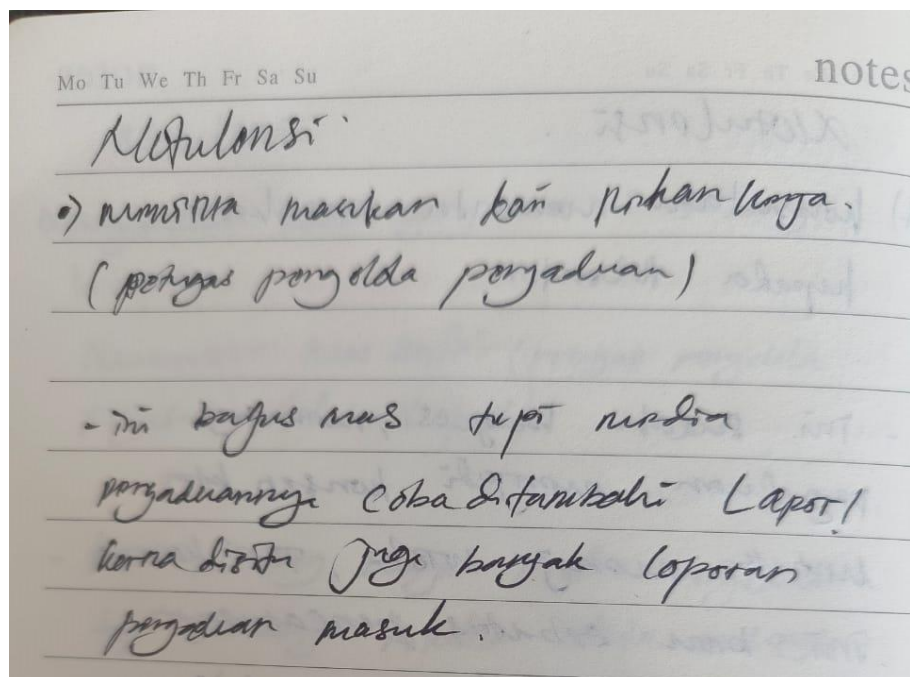 Mo Tu We Th Fr Sa Su
notes
Notulensi
•) meminta masukan dari rekan kerja.
(petugas pengelola pengaduan)
- ini bagus mas tapi media
pengaduannya coba ditambahi Lapor!
karna disitu juga banyak laporan
pengaduan masuk.